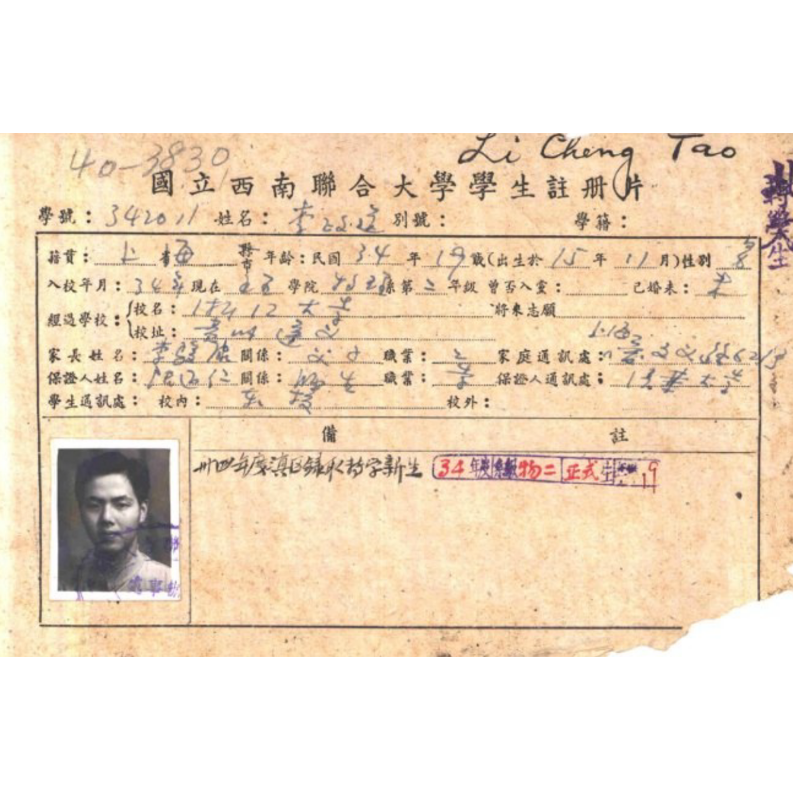 40-3830
Li Cheng Tao
國立西南聯合大學學生註冊片
學號：342011 姓名：李政道 別號： 學籍：
籍貫：上海 縣市 年齡：民國34年19歲(出生於15年11月)性別
入校年月：34年 現在 學院 系第二年級 曾否入黨： 已婚未：未
經過學校：{校名：浙江大學 將來志願
校址：貴州
家長姓名：李駿康 關係：父子 職業： 家庭通訊處：上海
保證人姓名： 關係：師生 職業：學 保證人通訊處：清華大學
學生通訊處：校內：本校 校外：
備註
卅四年度滇區錄取 學新生 34年度 物二 正式生
轉學生